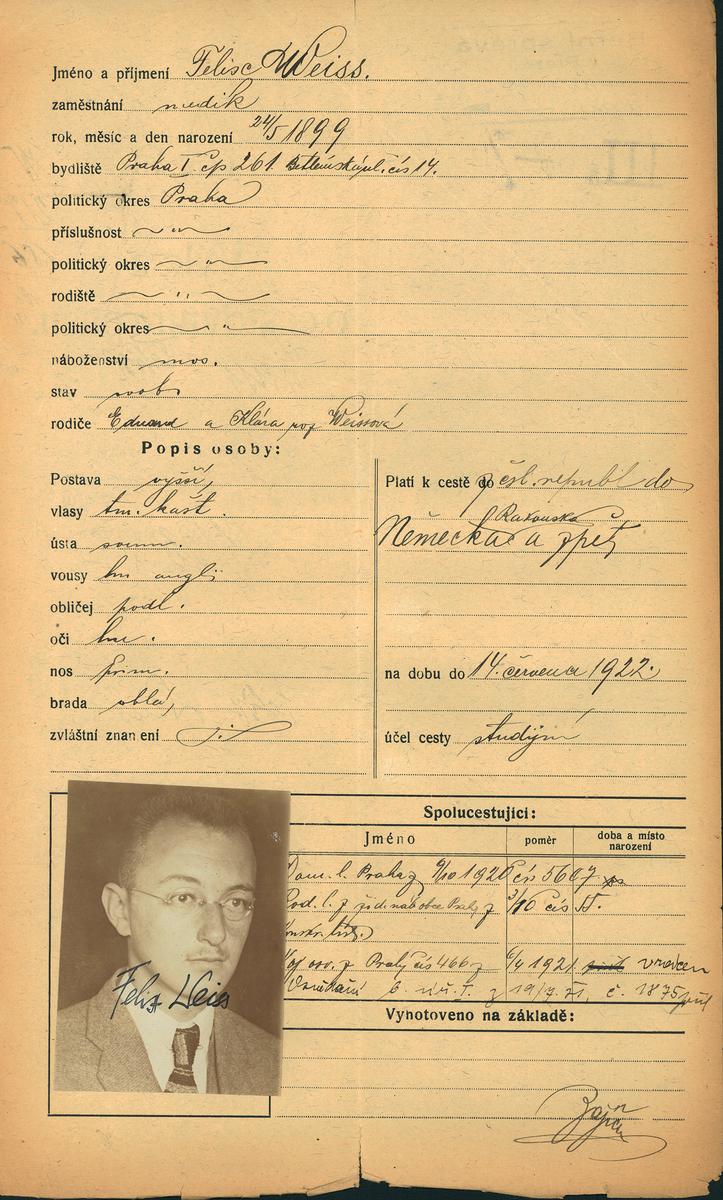 Jméno a příjmení Felix Weiss.
zaměstnání medik
rok, měsíc a den narození 24/5 1899
bydliště Praha I čp 261. Betlémská ul. čís 14.
politický okres Praha
příslušnost ~ " ~
politický okres ~ " ~
rodiště ~ " ~
politický okres ~ " ~
náboženství mos.
stav svob
rodiče Eduard a Klára roz Weissová
Popis osoby:
Postava vyšší,
vlasy tm. kašt.
ústa soum.
vousy hn angl
obličej podl.
oči hn.
nos přim.
brada oblá,
zvláštní znamení
Platí k cestě do z čsl. republ do
Rakouska
Německa a zpět
na dobu do 14. července 1922.
účel cesty studijní
Spolucestující:
Jméno poměr doba a místo narození
Dom. l. Praha z 9/10 1920 čís 5607
Rod. l. z žid. náb obce Prahy z 3/10 čís
z Prahy čís 466 z 6/4 1921 vrácen
z 19/7 21 č. 1875
Felix Weiss
Vyhotoveno na základě: